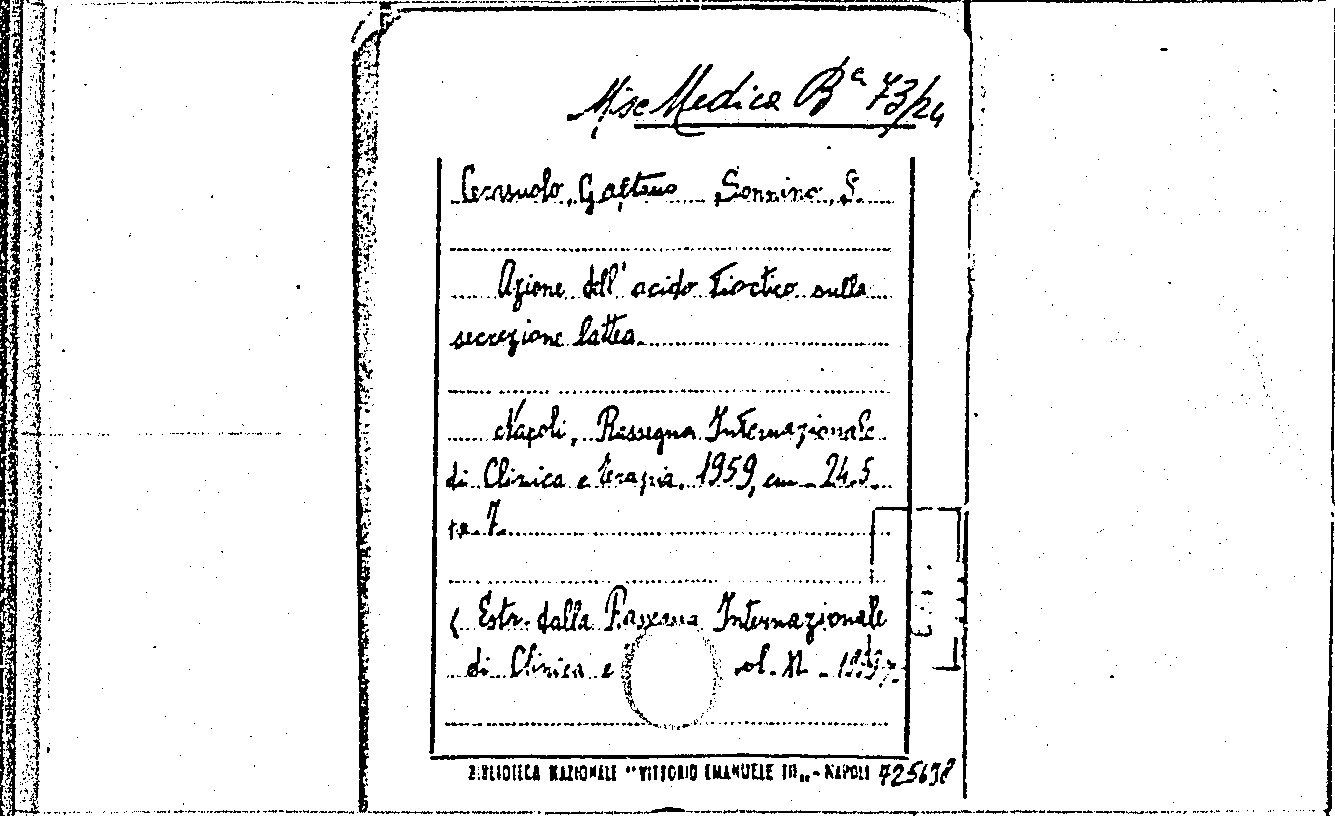 Misc Medica Bᵃ 73/24
Cerasuolo, Gaetano Sonnino, S.
Azione dell' acido tioctico sulla
secrezione lattea.
Napoli, Rassegna Internazionale
di Clinica e Terapia, 1959, cm. 24,5
pp. 7.
( Estr. dalla Rassegna Internazionale
di Clinica e ol. 1959).
BIBLIOTECA NAZIONALE "VITTORIO EMANUELE III" - NAPOLI 725698